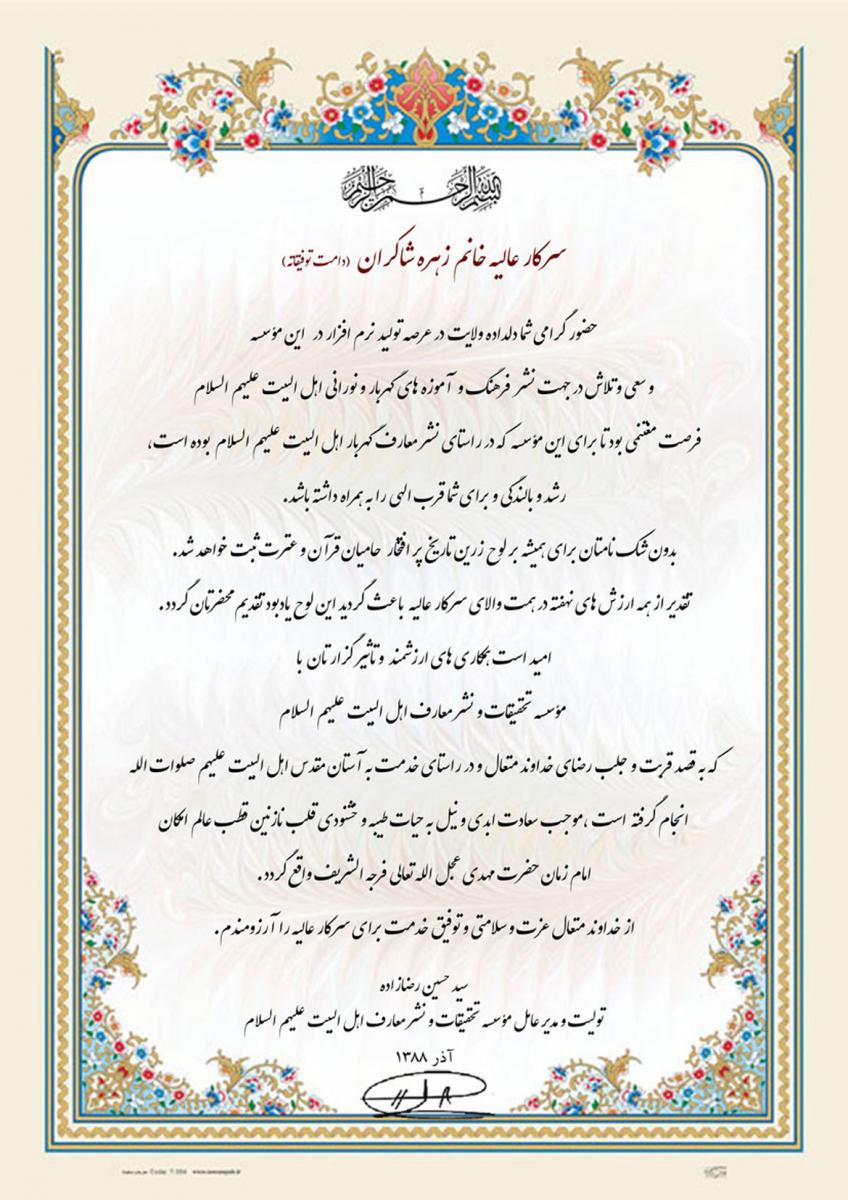 بسم الله الرحمن الرحیم
سرکار عالیه خانم زهره شاکران (دامت توفیقاته)
حضور گرامی شما دلداده ولایت در عرصه تولید نرم افزار در این مؤسسه
و سعی و تلاش در جهت نشر فرهنگ و آموزه های گهربار و نورانی اهل البیت علیهم السلام
فرصت مغتنمی بود تا برای این مؤسسه که در راستای نشر معارف گهربار اهل البیت علیهم السلام بوده است،
رشد و بالندگی و برای شما قرب الهی را به همراه داشته باشد.
بدون شک نامتان برای همیشه بر لوح زرین تاریخ پر افتخار حامیان قرآن و عترت ثبت خواهد شد.
تقدیر از همه ارزش های نهفته در همت والای سرکار عالیه باعث گردید این لوح یادبود تقدیم محضرتان گردد.
امید است همکاری های ارزشمند و تاثیر گزارتان با
مؤسسه تحقیقات و نشر معارف اهل البیت علیهم السلام
که به قصد قربت و جلب رضای خداوند متعال و در راستای خدمت به آستان مقدس اهل البیت علیهم صلوات الله
انجام گرفته است ،موجب سعادت ابدی و نیل به حیات طیبه و خشنودی قلب نازنین قطب عالم امکان
امام زمان حضرت مهدی عجل الله تعالی فرجه الشریف واقع گردد.
از خداوند متعال عزت و سلامتی و توفیق خدمت برای سرکار عالیه را آرزومندم.
سید حسین رضازاده
تولیت و مدیر عامل مؤسسه تحقیقات و نشر معارف اهل البیت علیهم السلام
آذر ۱۳۸۸